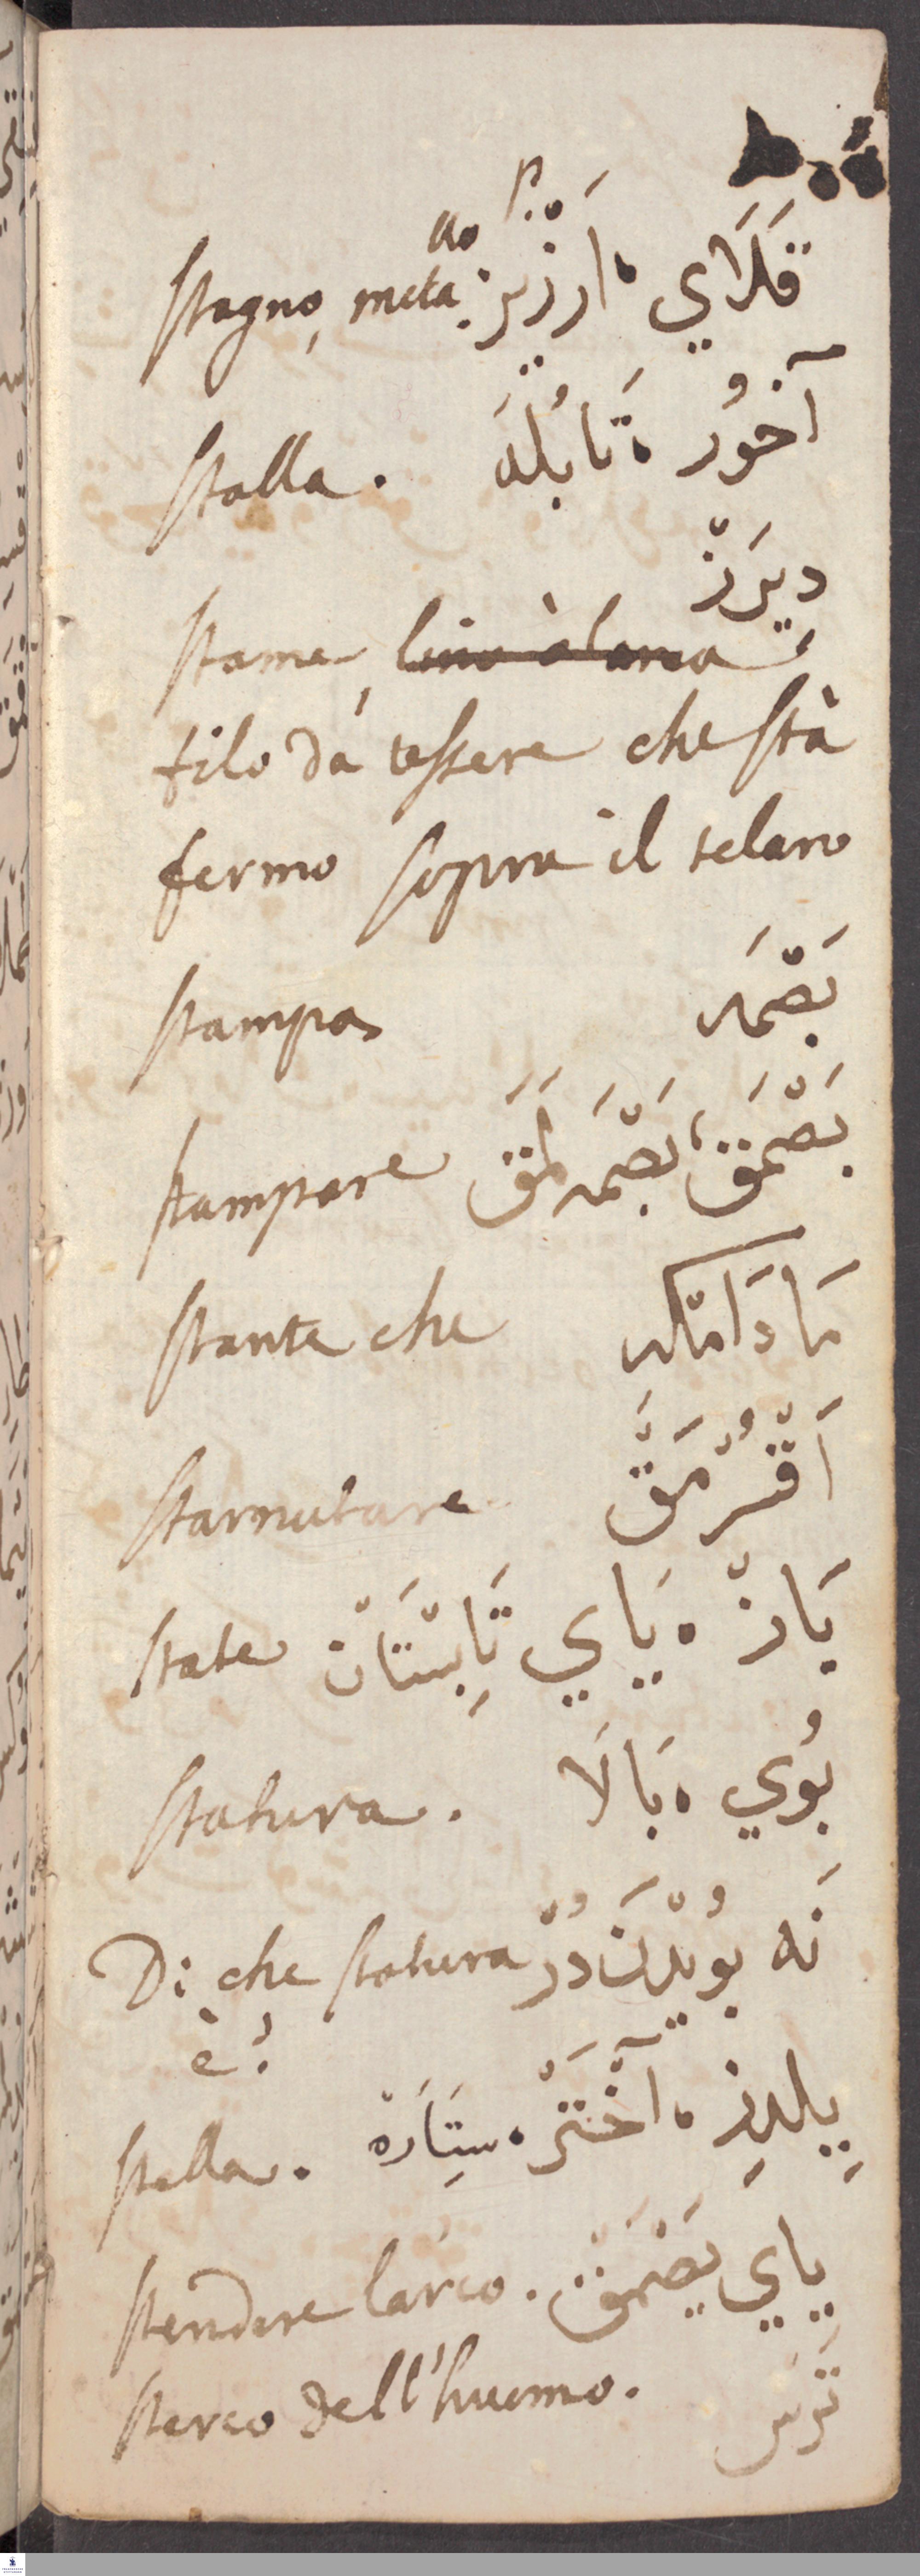 stagno, meta.llo قَلَاي ، اَرْزْيز p.
stalla. آخوُر ، تَابُلَه
دِيرَزْ
stame, lino à lana
filo dà tessere che stà
fermo sopra il telaro
stampa بَصْمَه
stampare بَصْمَق، بَصْمَه لَمَق
stante che مَا دَامَكه
starnutare اَقْسُرْمَقْ
state يَازْ ، يَاي تَابِسْتَانْ
statura. بُوي ، بَالَا
Di che statura نَه بُويْدَنْ دُرْ
è?
stella. يِيلدِز ، آخْتَرْ ، سِتَارَهْ
stendere l'arco. ياي يَصْمَق
sterco dell'huomo. تَرس